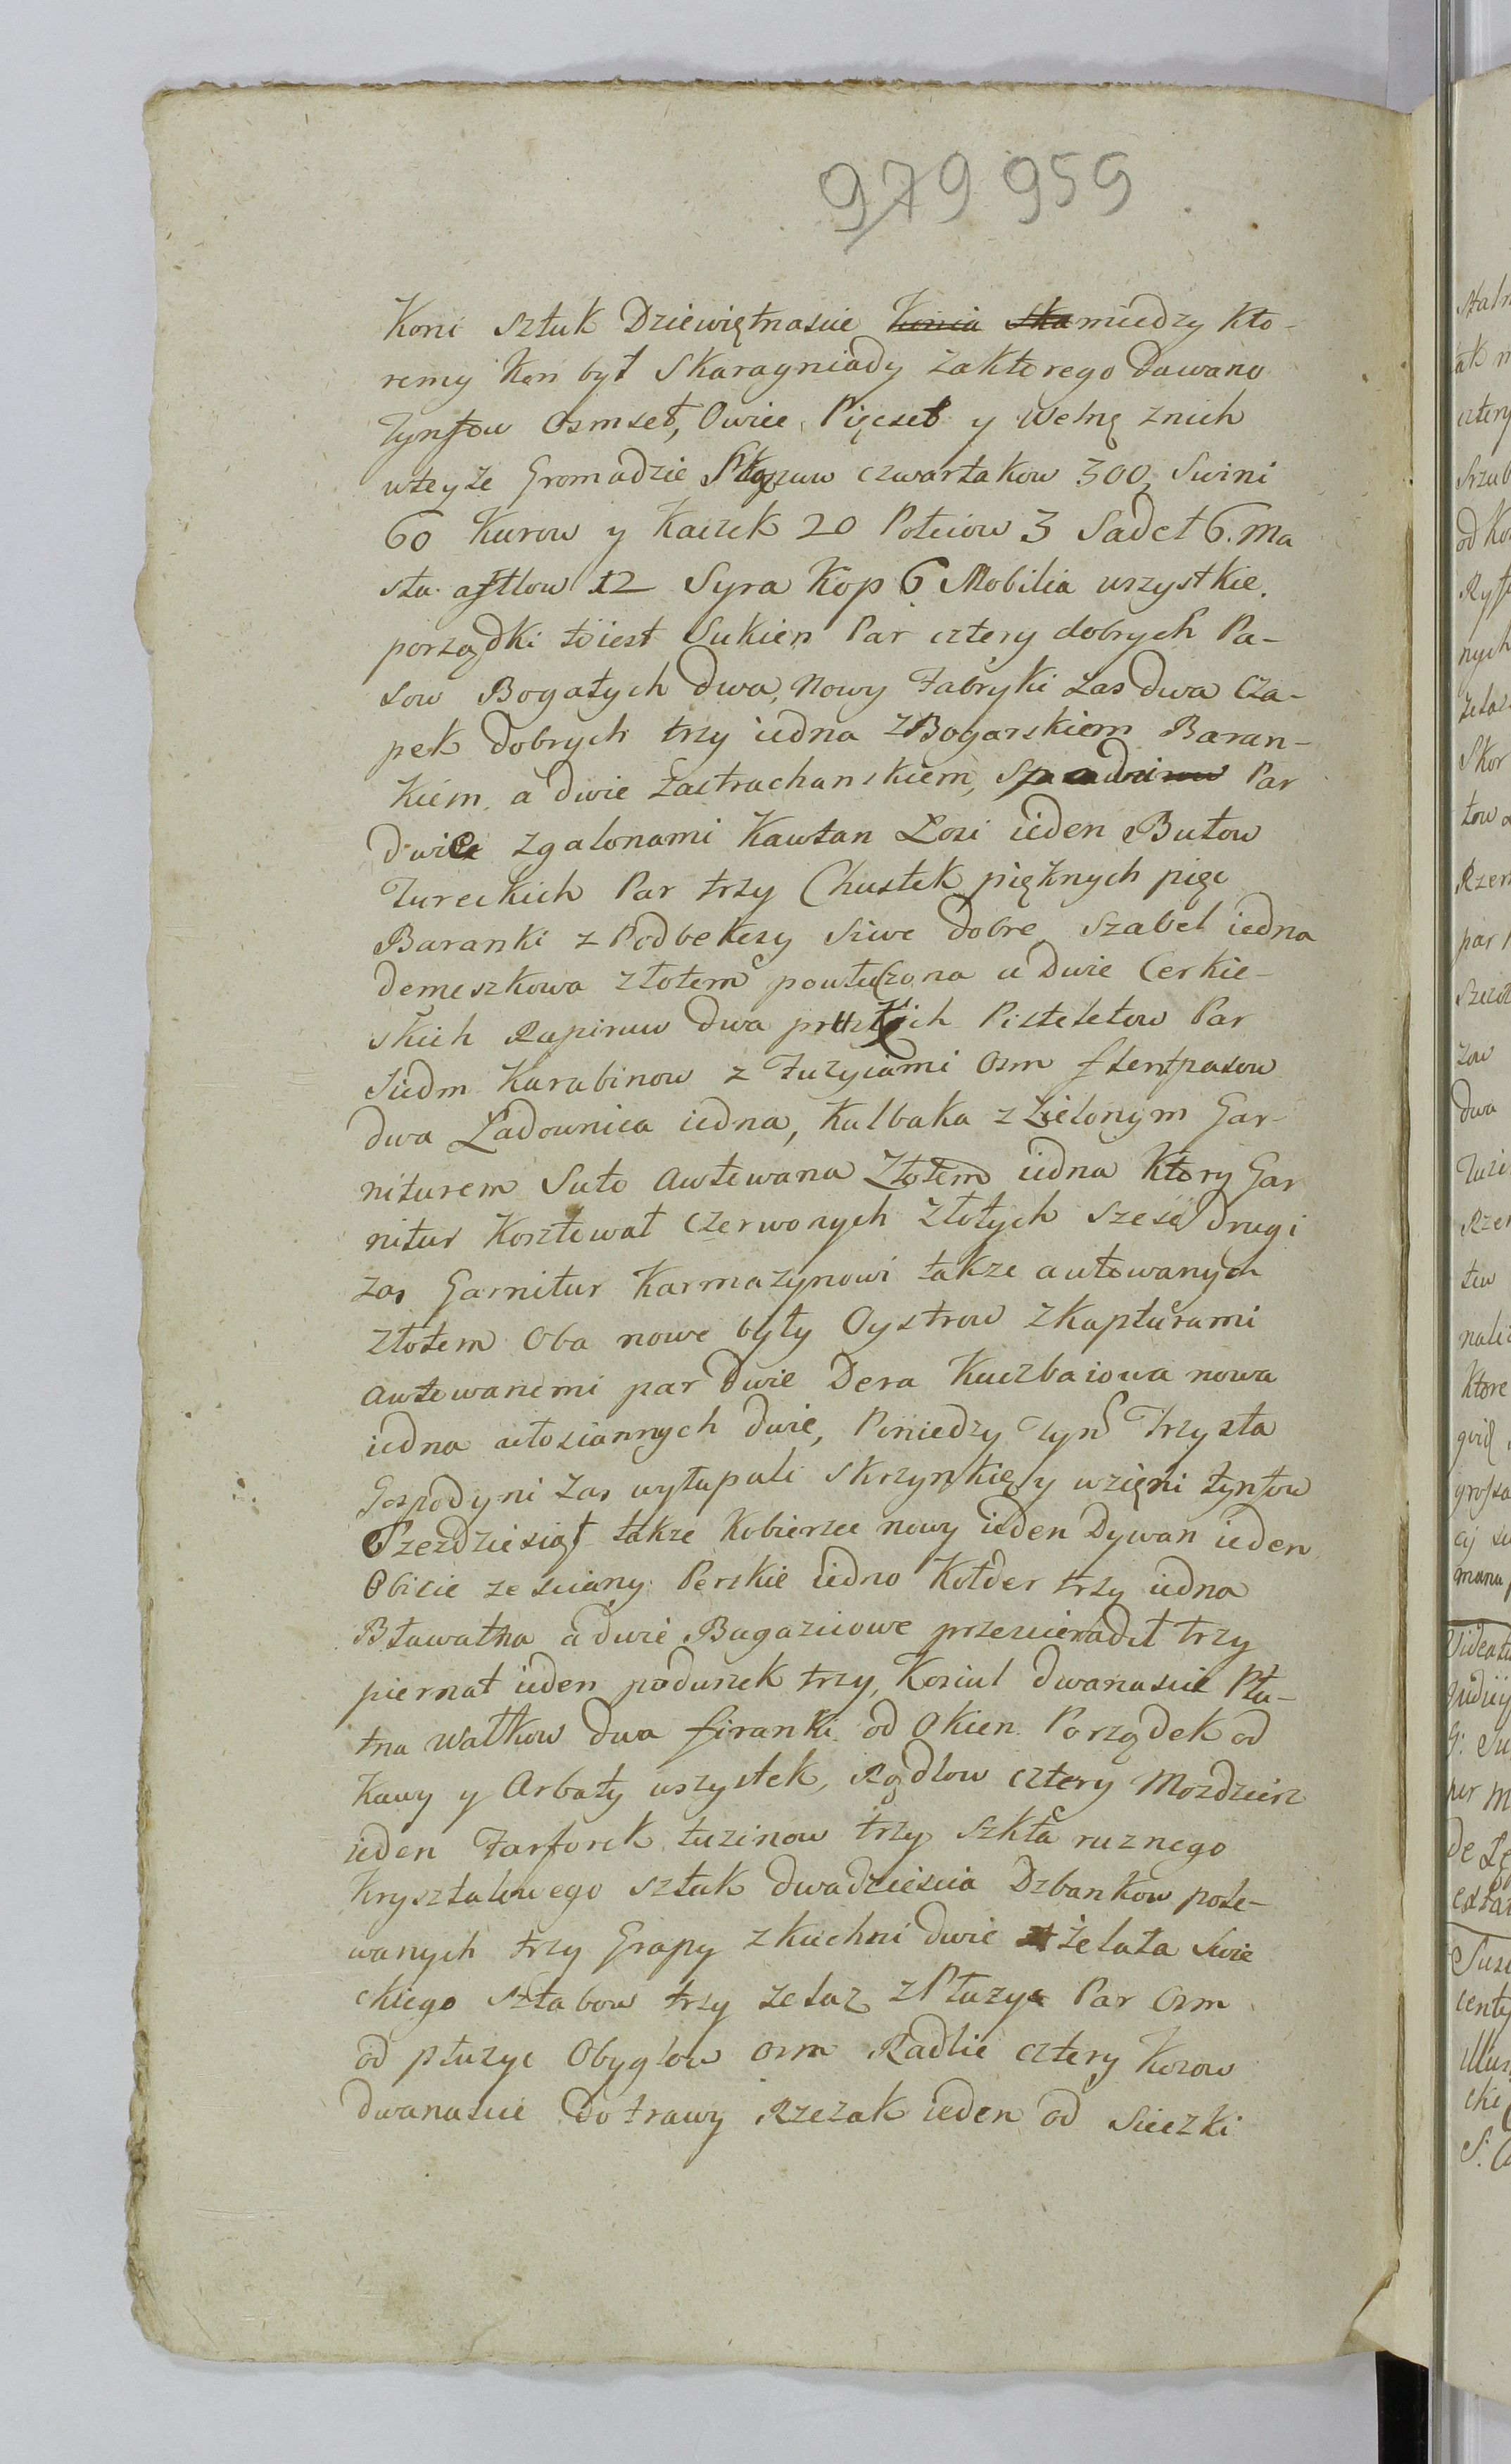 979 959
Koni sztuk Dziewiętnascie Konia Ska miedzy kto-
remy Kon był Skarogniady zaktorego Dawano
Tynfow Osmset, Owiec Pięcset y Wełnę znich
wteyże Gromadzie czwartakow 300, Swini
60 Kurow y Kaczek 20 Połciow 3 Sadeł 6. Ma
sła 12 Syra Kop 6 Mobilia wszystkie.
porządki toiest Sukien Par cztery dobrych Pa-
sow Bogatych dwa, nowy Fabryki zas dwa Cza-
pek dobrych trzy iedna zBogarskiem Baran-
kiem, a dwie zastrachanskiem, Par
dwie zgalonami Kawtan Łosi ieden Butow
Tureckich Par trzy Chustek pięknych pięc
Baranki z Podbekeszy siwe dobre Szabel iedna
demeszkowa złotem a dwie Cerkie-
skich Rapiruw dwa Pisteletow Par
Siedm Karabinow z Fuzyiami Osm flentpasow
dwa Ładownica iedna, Kulbaka z Zielonym Gar-
niturem Suto awtowana Złotem iedna Ktory Gar
nitur Kosztował czerwonych złotych szesc drugi
zas Garnitur Karmazynowi takze awtowanych
złotem Oba nowe były Oystrow zkapturami
awtowanemi par dwie Dera Kuczbaiowa nowa
iedna włosiannych dwie, Piniedzy Tyn Trzysta
Gospodyni zas wyłupali skrzynkię y wzięni tynfow
Szezdziesiąt takze Kobierzec nowy ieden Dywan ieden
Obicie ze sciany Perskie iedno Kołder trzy iedna
Bławatna a dwie Bagaziiowe przescieradeł trzy
piernat ieden poduszek trzy, Koszul dwanascie Płu-
tna wałkow dwa firanki od Okien Porządek od
kawy y Arbaty wszystek, Rądlow cztery Mozdzierz
ieden Farforek tuzinow trzy szkła ruznego
kryształowego sztuk dwadziescia Dzbankow pole-
wanych trzy Grapy zkuchni dwie żelaza Swie
ckiego sztabow trzy zelaz zPłuzyc Par Osm
od płuzyc Obyglow osm Radlic cztery Kosow
dwanascie do trawy Rzezak ieden od sieczki